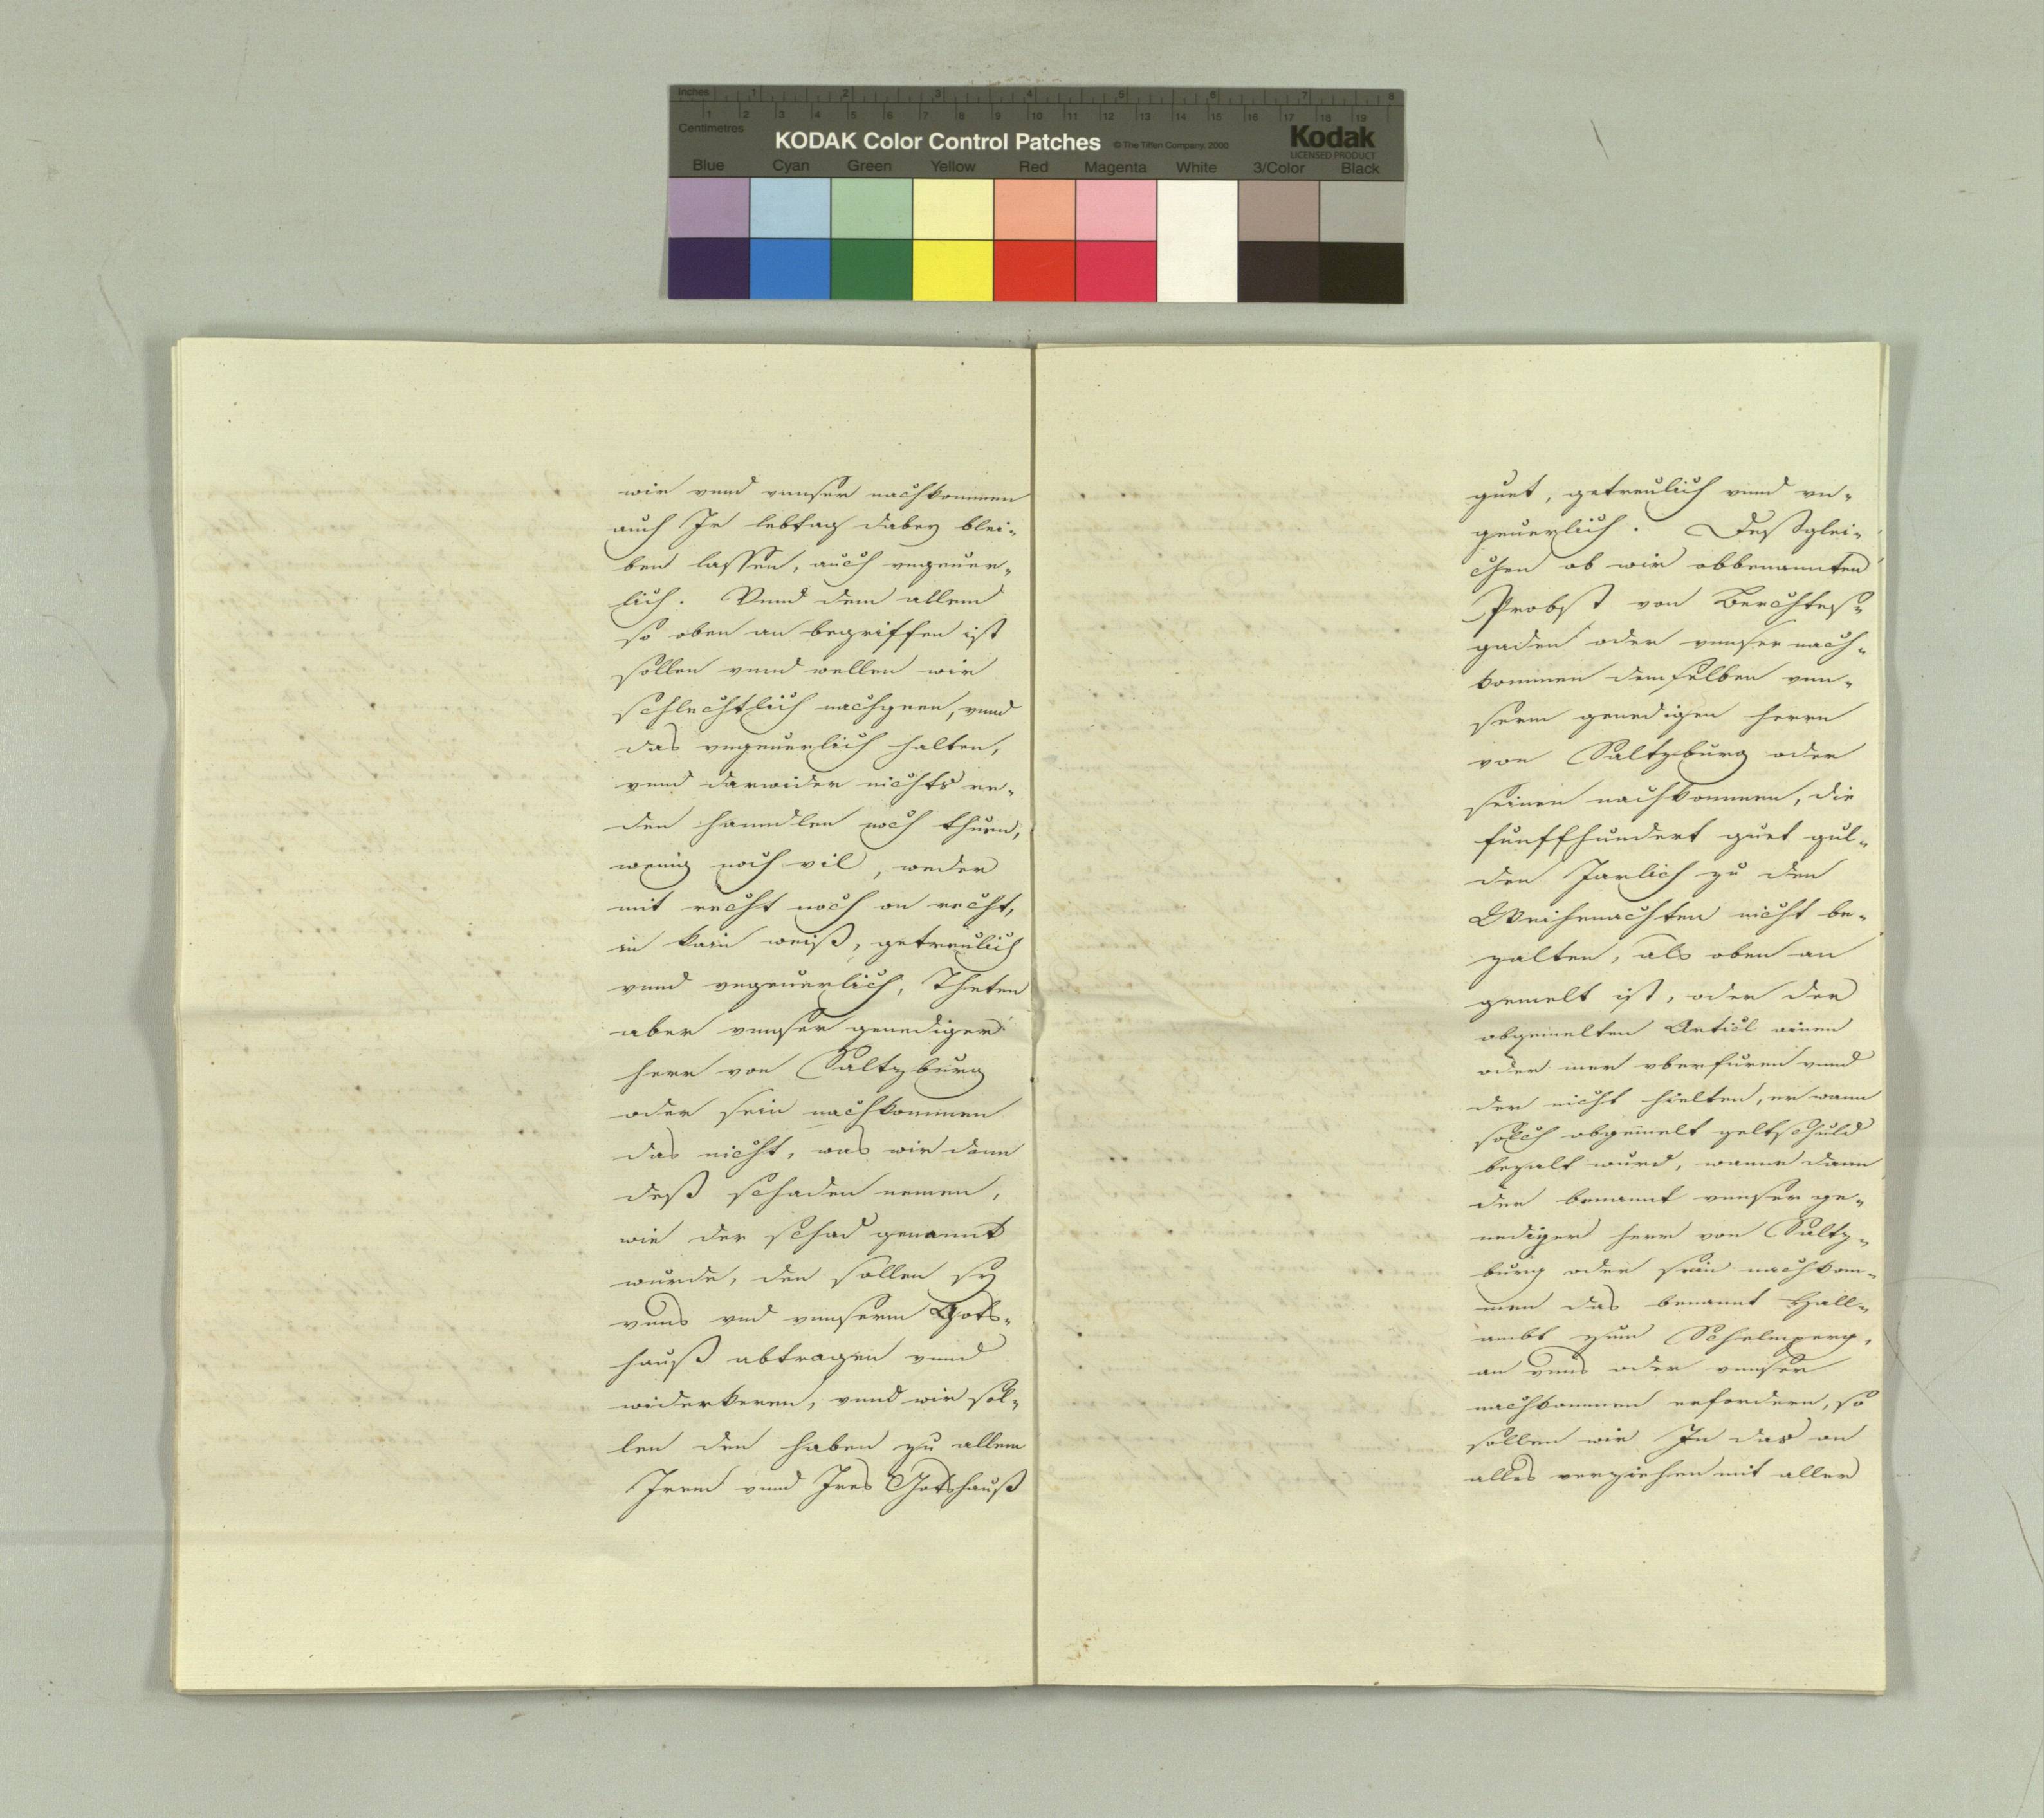 Inches 1 2 3 4 5 6 7 8
Centimetres 1 2 3 4 5 6 7 8 9 10 11 12 13 14 15 16 17 18 19
KODAK Color Control Patches © The Tiffen Company, 2000 Kodak
LICENSED PRODUCT
Blue Cyan Green Yellow Red Magenta White 3/Color Black
wir vnnd vnnser nachkommen
auch Ir lebtag dabey blei-
ben lassen, auch vngeuer-
lich. Vnnd dem allem
so oben an begriffen ist
sollen vnnd wellen wir
schlechtlich nachgeen, vnnd
das vngeuerlich halten,
vnnd darwider nichts re-
den hanndlen noch thuen,
wenig noch vil, weder
mit recht noch on recht,
in kain weiß, getreulich
vnnd vngeuerlich, Theten
aber vnnser genediger
herr von Saltzburg
oder sein nachkommen
das nicht, was wir dann
deß schaden nemen,
wie der schad genannt
wurde, den sollen sy
vnns vnd vnnserm Gots-
hauß abtragen vnnd
widerkeren, vnnd wir sol-
len den haben zu allem
Irem vnnd Ires Gotshauß
guet, getreulich vnnd vn-
geuerlich. Deßglei-
chen ob wir obbenannten
Probst von Berchtes-
gaden oder vnnser nach-
kommen demselben vnn-
serm genedigen herrn
von Saltzburg oder
seinen nachkommen, die
funffhundert guet gul-
den Jarlich zu den
Weihenachten nicht be-
zalten, als oben an
gemelt ist, oder der
obgemelten Articl ainen
oder mer vberfuren vnnd
der nicht hielten, er wann
solch obgemelt geltschuld
bezalt wurd, wanne dann
der benannt vnnser ge-
nediger herr von Saltz-
burg oder sein nachkom-
men das benannt Hall-
ambt zum Schelmperg,
an vnns oder vnnser
nachkommen erfordern, so
sollen wir In das on
alles verziehen mit aller